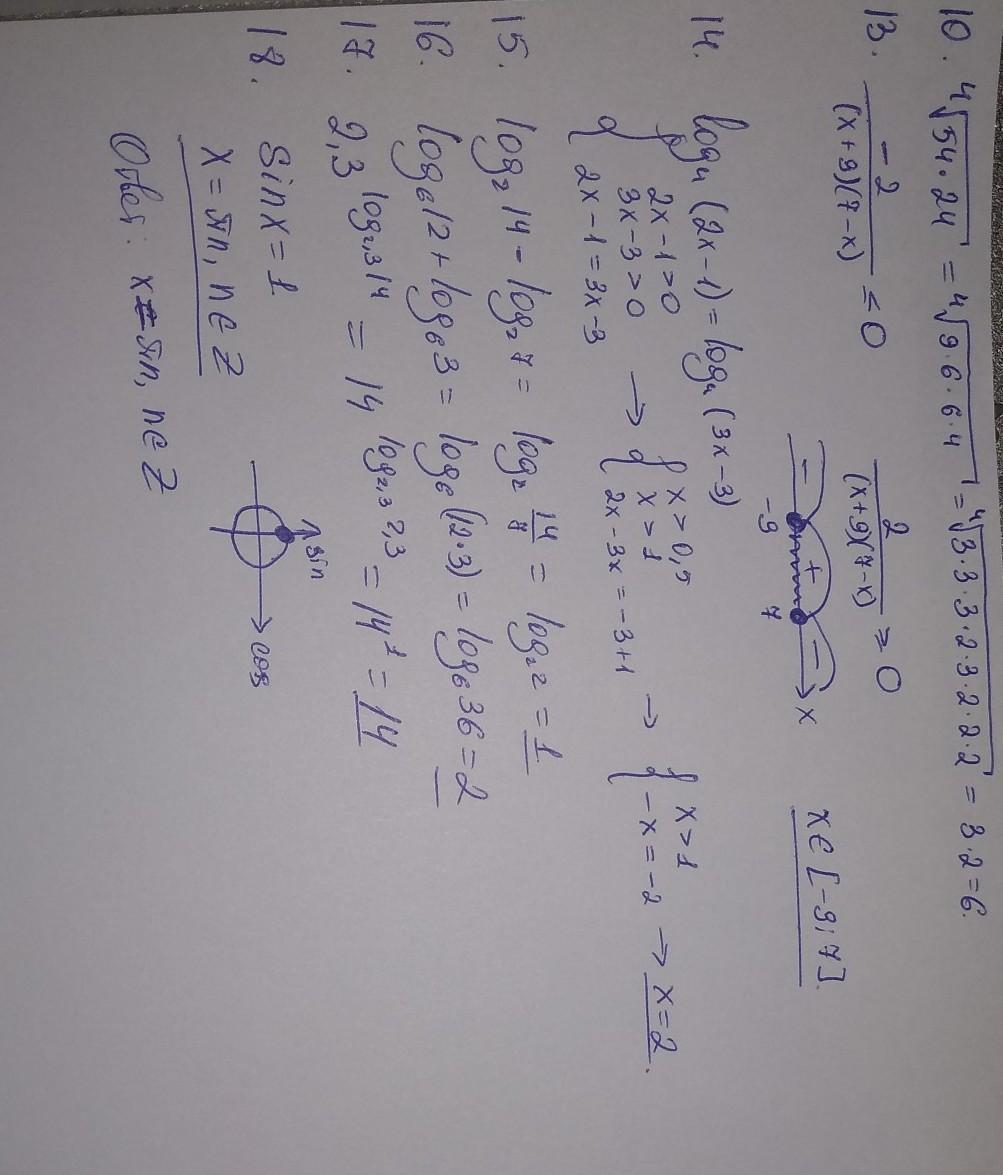 10. ⁴√54·24 = ⁴√9·6·6·4 = ⁴√3·3·3·2·3·2·2·2 = 3·2=6.
13. -2/((x+9)(7-x)) ≤ 0 2/((x+9)(7-x)) ≥ 0
- + - x
-9 7
x∈[-9;7].
14. log₄(2x-1) = log₄(3x-3)
{2x-1>0 → {x>0,5 → {x>1
3x-3>0 x>1
2x-1=3x-3 2x-3x=-3+1 -x=-2 → x=2.
15. log₂14 - log₂7 = log₂ 14/7 = log₂2 = 1
16. log₆12 + log₆3 = log₆(12·3) = log₆36 = 2
17. 2,3^(log₂,₃14) = 14^(log₂,₃2,3) = 14¹ = 14
18. Sinx = 1
sin
cos
x = πn, n∈Z
Ответ: x = πn, n∈Z